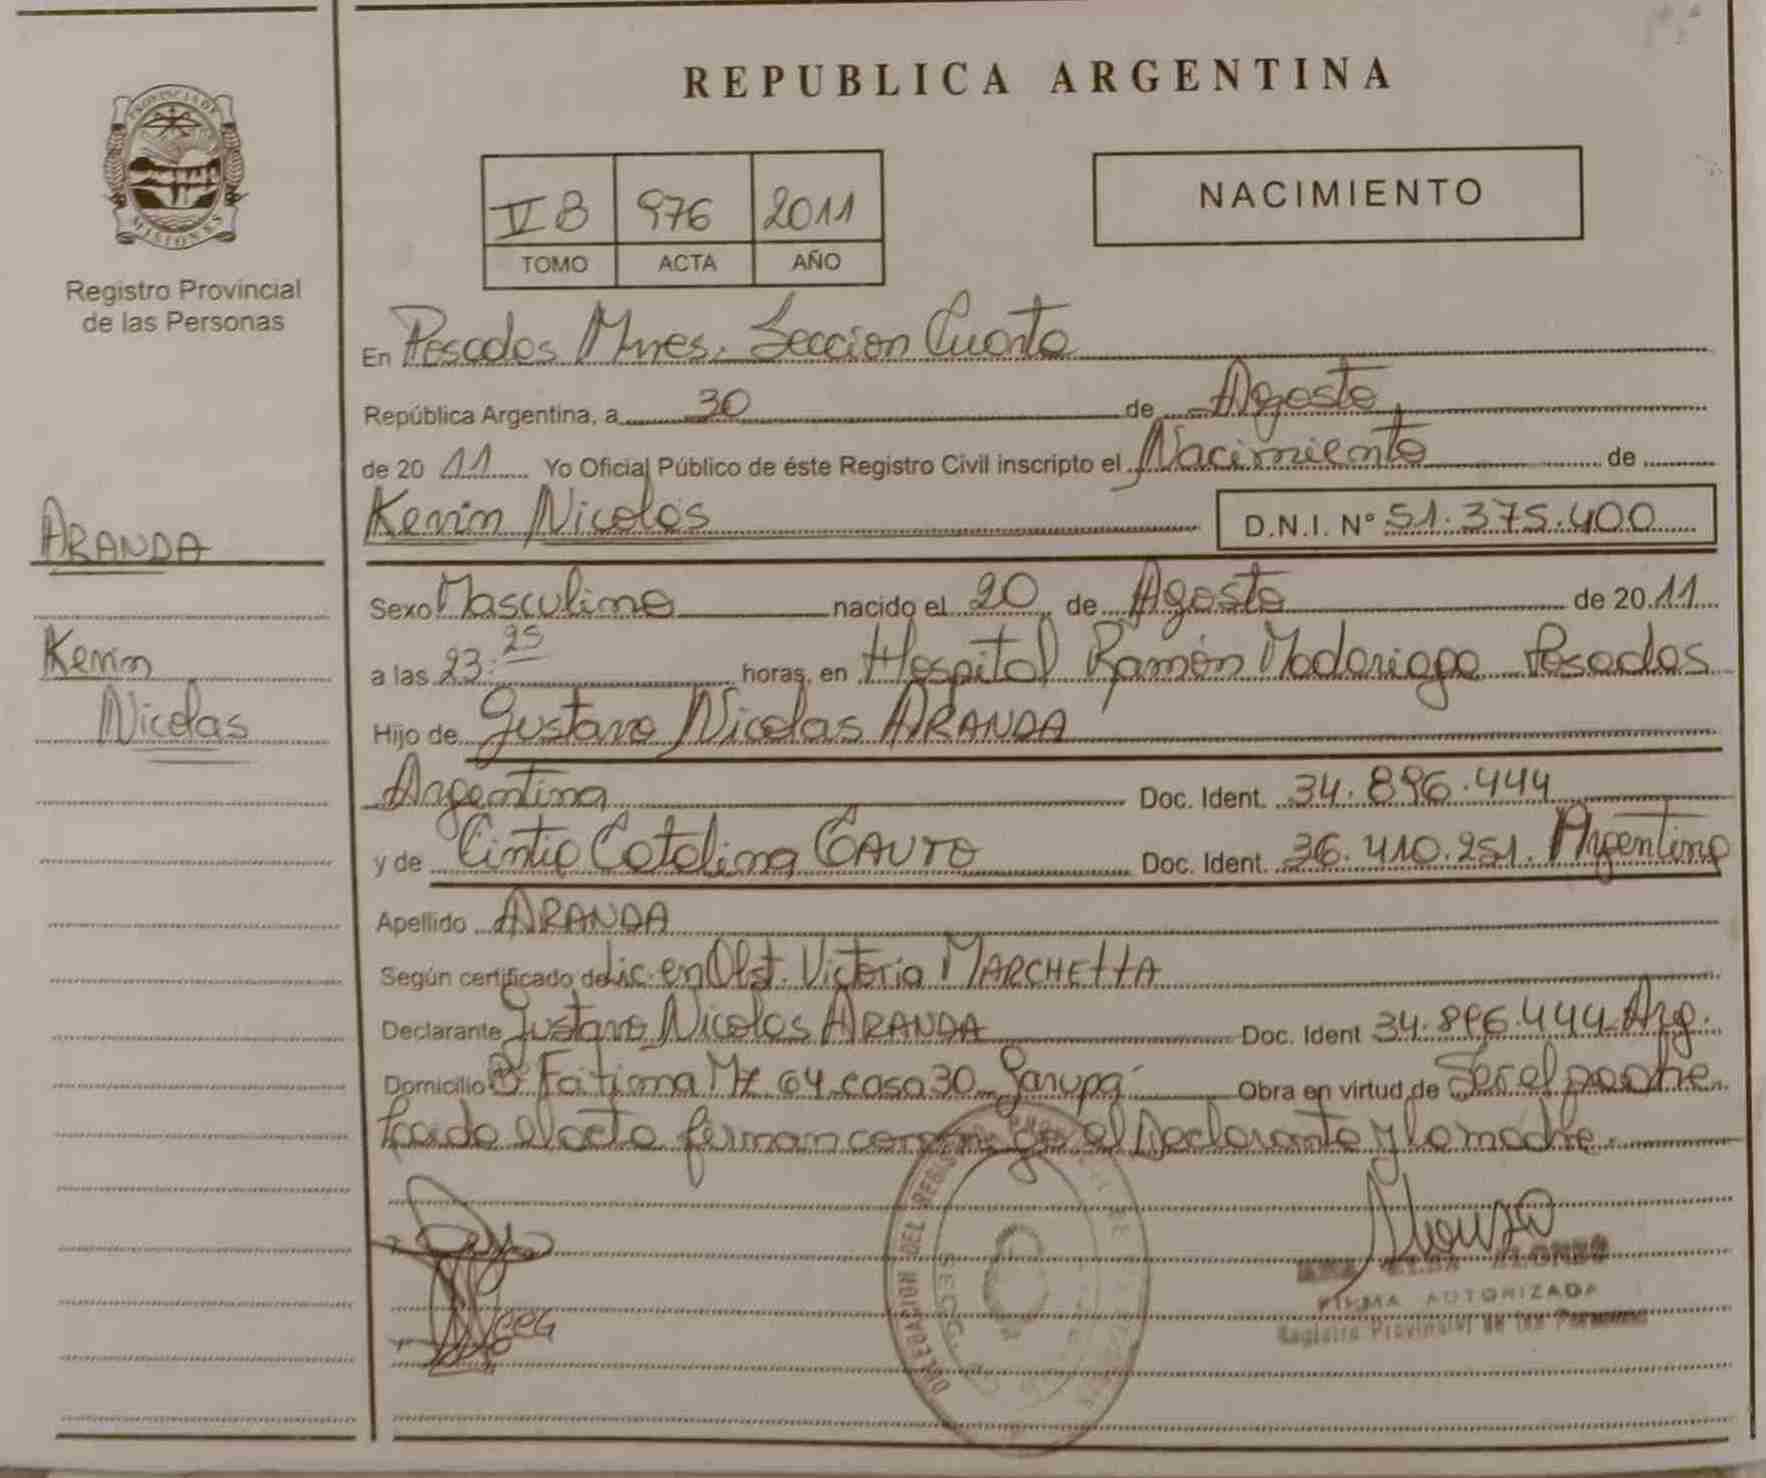 REPUBLICA ARGENTINA
PROVINCIA DE
MISIONES
Registro Provincial
de las Personas
976 2011
TOMO ACTA AÑO
NACIMIENTO
En Posadas Mnes. Seccion Cuarta
República Argentina, a 30 de Agosto
de 2011 Yo Oficial Público de éste Registro Civil inscripto el Nacimiento de
Kevin Nicolas D.N.I. Nº 51.375.400
ARANDA
Kevin
Nicolas
Sexo Masculino nacido el 20 de Agosto de 2011
a las 23:25 horas, en Hospital Ramón Madariaga Posadas
Hijo de Gustavo Nicolas ARANDA
Argentina Doc. Ident. 34.896.444
y de Cintia Catalina CAUTO Doc. Ident. 36.410.251. Argentina
Apellido ARANDA
Según certificado de Lic. en Obst. Victoria MARCHETTA
Declarante Gustavo Nicolas ARANDA Doc. Ident 34.896.444 Arg.
Domicilio Bº Fátima Mz 64 casa 30 Garupá Obra en virtud de Ser el padre
el acta firman el Declarante y la madre.
DELEGACION DEL
SECC.
ALONSO
FIRMA AUTORIZADA
Registro Provincial de las Personas